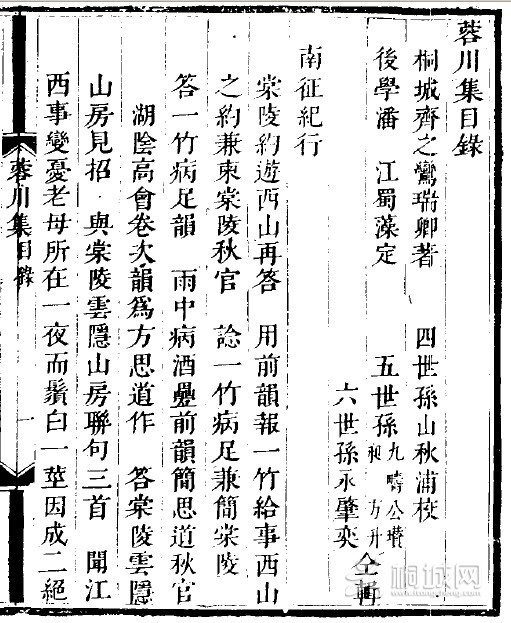 蓉川集目錄
桐城齊之鸞瑞卿著 四世孫山秋浦梓
後學潘 江蜀藻定 五世孫九疇公瓚
昶 方升
六世孫永肇奕
仝輯
南征紀行
棠陵約遊西山再答 用前韻報一竹給事西山
之約兼柬棠陵秋官 諗一竹病足兼簡棠陵
答一竹病足韻 雨中病酒疊前韻簡思道秋官
湖陰高會卷次韻爲方思道作 答棠陵雲隱
山房見招 與棠陵雲隱山房聯句三首 聞江
西事變憂老母所在一夜而鬚白一莖因成二絕
蓉川集目錄 一
桐城网
www.itongcheng.cc